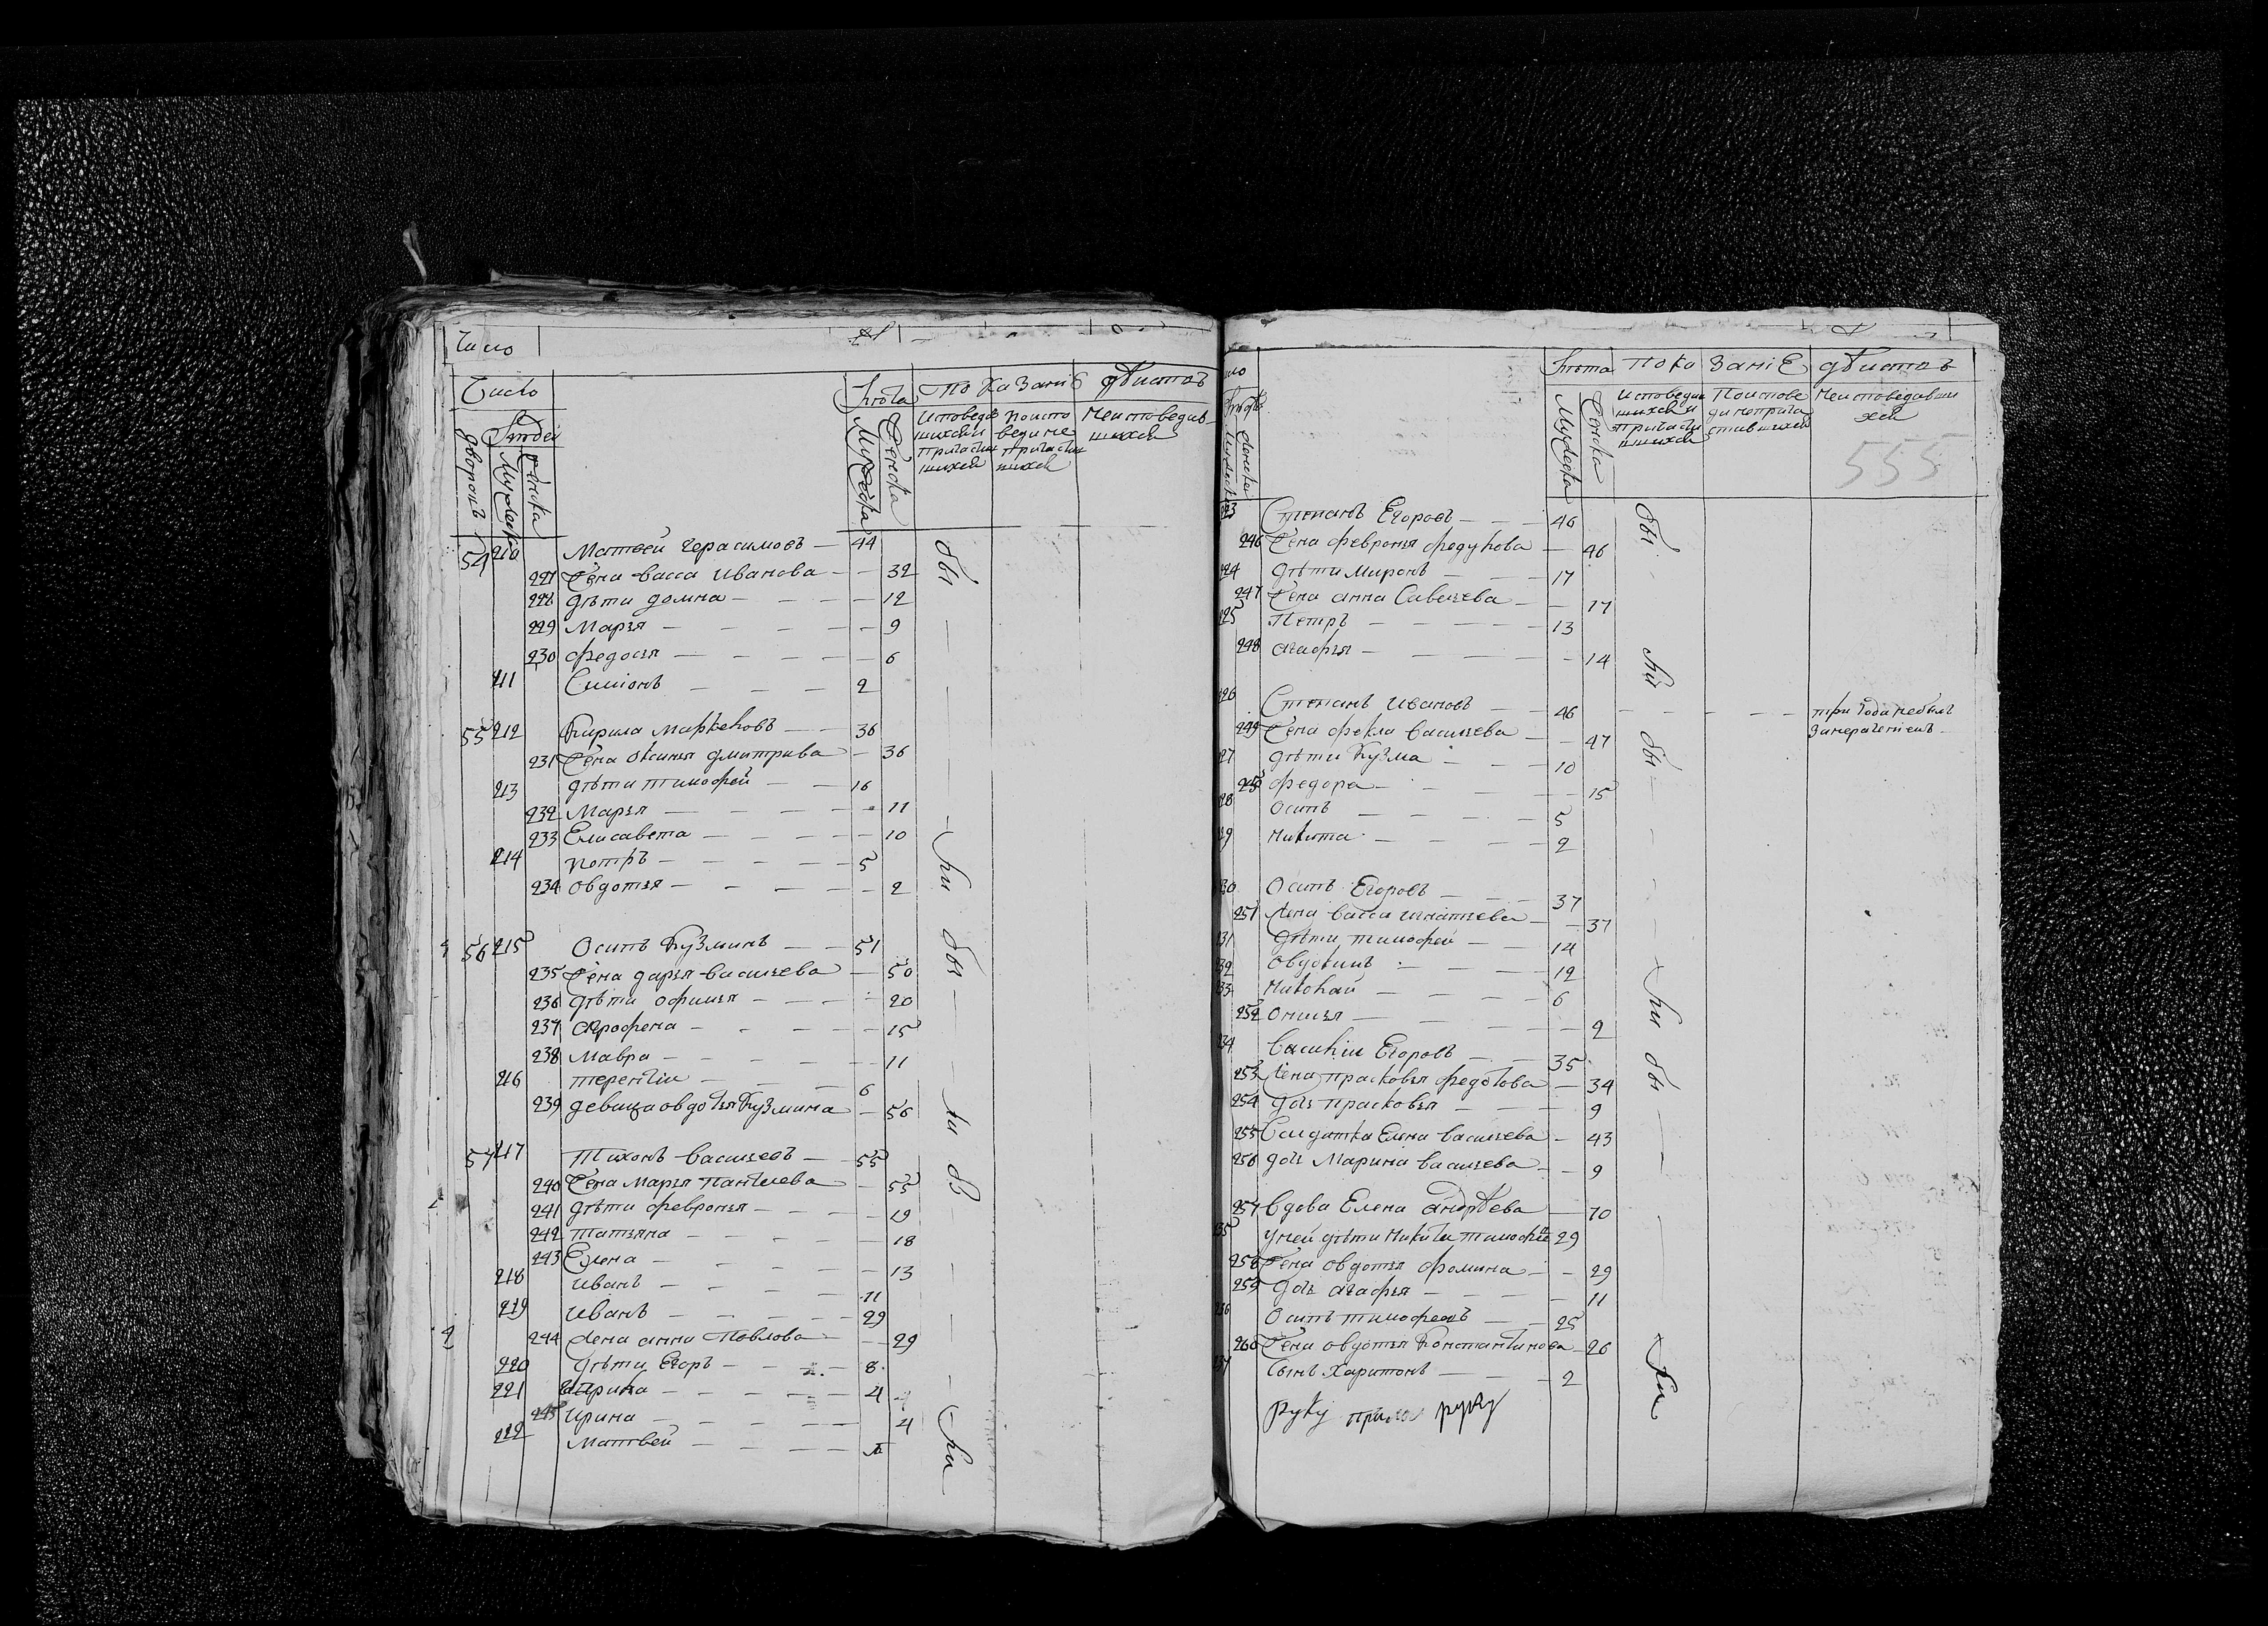 Число
Число
Людеи
дворовъ
Мужеска
женска
Лѣта
Мужеска
Женска
показаниѣ дѣиство
исповедав
шихся и
причастив
шихся
по испо
веди не
причастив
шихся
Неисповедав
шихся
54 210 Матвеи Герасимовъ — 44
227 Жена васса Иванова — 32
228 дѣти домна — 12
229 Марья — 9
230 федосья — 6
211 Симионъ — 2
55 212 Кирила Маркеловъ — 36
231 Жена Оксинья дмитрива — 36
213 дѣти тимофей — 16
232 Марья — 11
233 Елисавета — 10
214 петръ — 5
234 овдотья — 2
56 215 Осипъ Кузминъ — 51
235 Жена дарья васильева — 50
236 дѣти офимья — 20
237 агрофена — 15
238 Мавра — 11
216 терентiи — 6
239 девица овдотья Кузмина — 56
57 217 Тихонъ васильевъ — 55
240 Жена Марья пантилева — 55
241 дѣти февронья — 19
242 татьяна — 18
243 Елена — 13
218 иванъ — 11
219 иванъ — 29
244 Жена анна Повлова — 29
220 дѣти Егоръ — 8
221 — 4
245 ирина — 4
222 Матвеи —
бы
ли
бы
ли
бы
ли
Лѣта
показаниЕ дѣистов
Мужеска
Женска
исповедав
шихся и
причасти
вшихся
По испове
ди неприча
стившихся
Неисповедавши
хся
555
223 Степанъ Егоровъ — 46
246 Жена февронья федулова — 46
224 дѣти Миронъ — 17
247 Жена анна Савельева — 17
225 Петръ — 13
248 агафья — 14
226 Степанъ Ивановъ — 46 — три года небылъ
занерачениемъ
249 Жена фекла васильева — 47
227 дѣти Кузма — 10
250 федора — 15
228 Осипъ — 5
229 Никита — 2
230 Осипъ Егоровъ — 37
251 Жена васса игнатьева — 37
231 дѣти тимофеи — 14
232 овдокимъ — 12
233 Николаи — 6
252 онисья — 2
234 василiи Егоровъ — 35
253 Жена прасковья федотова — 34
254 дочь прасковья — 9
255 Салдатка Елена васильева — 43
256 дочь Марина васильева — 9
257 вдова Елена андрѣева — 70
235 унеи дѣти Никита тимофѣе 29
258 Жена овдотья фомина — 29
259 дочь агафья — 11
236 Осипъ тимофеевъ — 25
260 Жена овдотья Константинова — 26
237 Сынъ Харитонъ — 2
руку руку
бы
ли
бы
ли
бы
ли